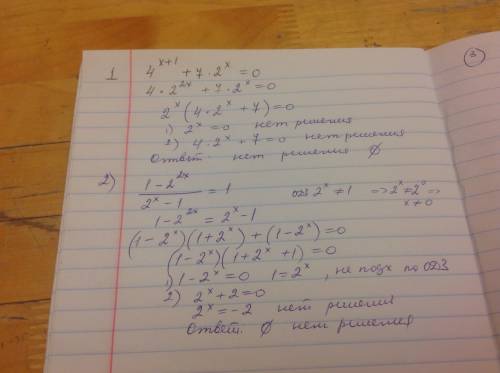 3
1 4^{x+1} + 7 · 2^x = 0
4 · 2^{2x} + 7 · 2^x = 0
2^x (4 · 2^x + 7) = 0
1) 2^x = 0 нет решения
2) 4 · 2^x + 7 = 0 нет решения
Ответ. нет решения ∅
2) \frac{1-2^{2x}}{2^x-1} = 1 ОДЗ 2^x ≠ 1 => 2^x ≠ 2^0 =>
x ≠ 0
1 - 2^{2x} = 2^x - 1
(1 - 2^x)(1 + 2^x) + (1 - 2^x) = 0
(1 - 2^x)(1 + 2^x + 1) = 0
1) 1 - 2^x = 0 1 = 2^x, не подх по ОДЗ
2) 2^x + 2 = 0
2^x = -2 нет решения
Ответ. ∅ нет решения